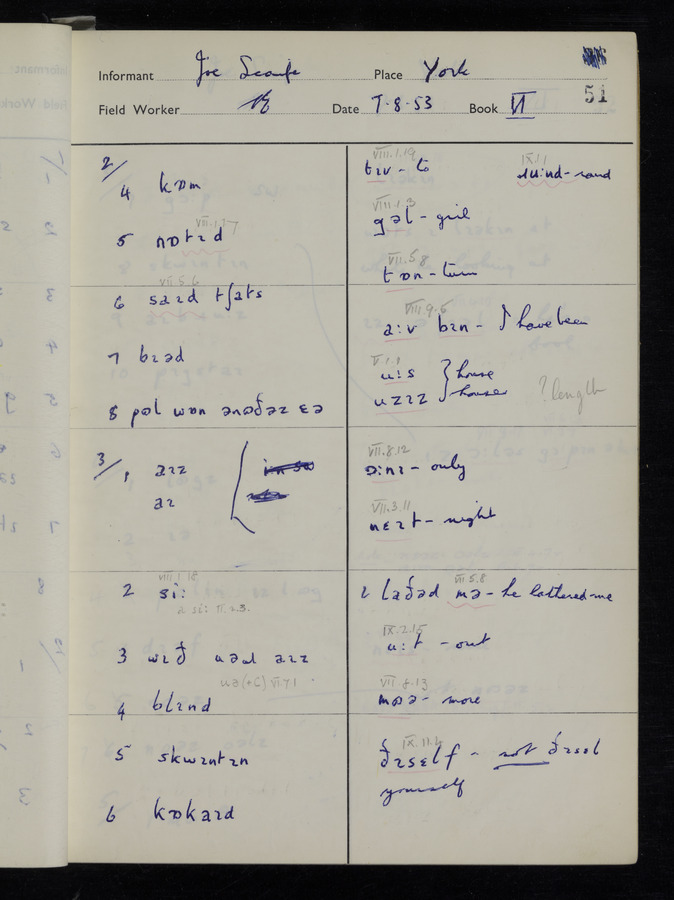 Informant Joe Place York
Field Worker Date 7-8-53 Book VI
51
2/
4 kɒm
5 nɒtɪd
VIII.1.17
VII.5.6
6 saɪd tʃats
7 bɪəd
8 pəl wɒn ənəðəz ɛə
3/
1 aɪz
aɪ
VIII.1.18
2 si:
ə si: VI.2.3.
3 wɪð uəl aɪz
uə(+C) VI.7.1
4 blɪnd
5 skwɪntɪn
6 kɒkaɪd
VIII.1.19
tɪv - to
IX.1.1
VIII.1.3
gəl - girl
VII.5.8
tɒn - turn
VIII.9.5
a:v bɪn - I have been
V.1.1
u:s house
uzɪz houses
? length
VII.8.12
ɔ:nɪ - only
VII.3.11
nɛɪt - night
2 laðəd mə - he lathered me
VII.5.8
IX.2.15
u:t - out
VII.8.13
mɒə - more
IX.11.4
ðɪsɛlf - not ðɪsəl
yourself